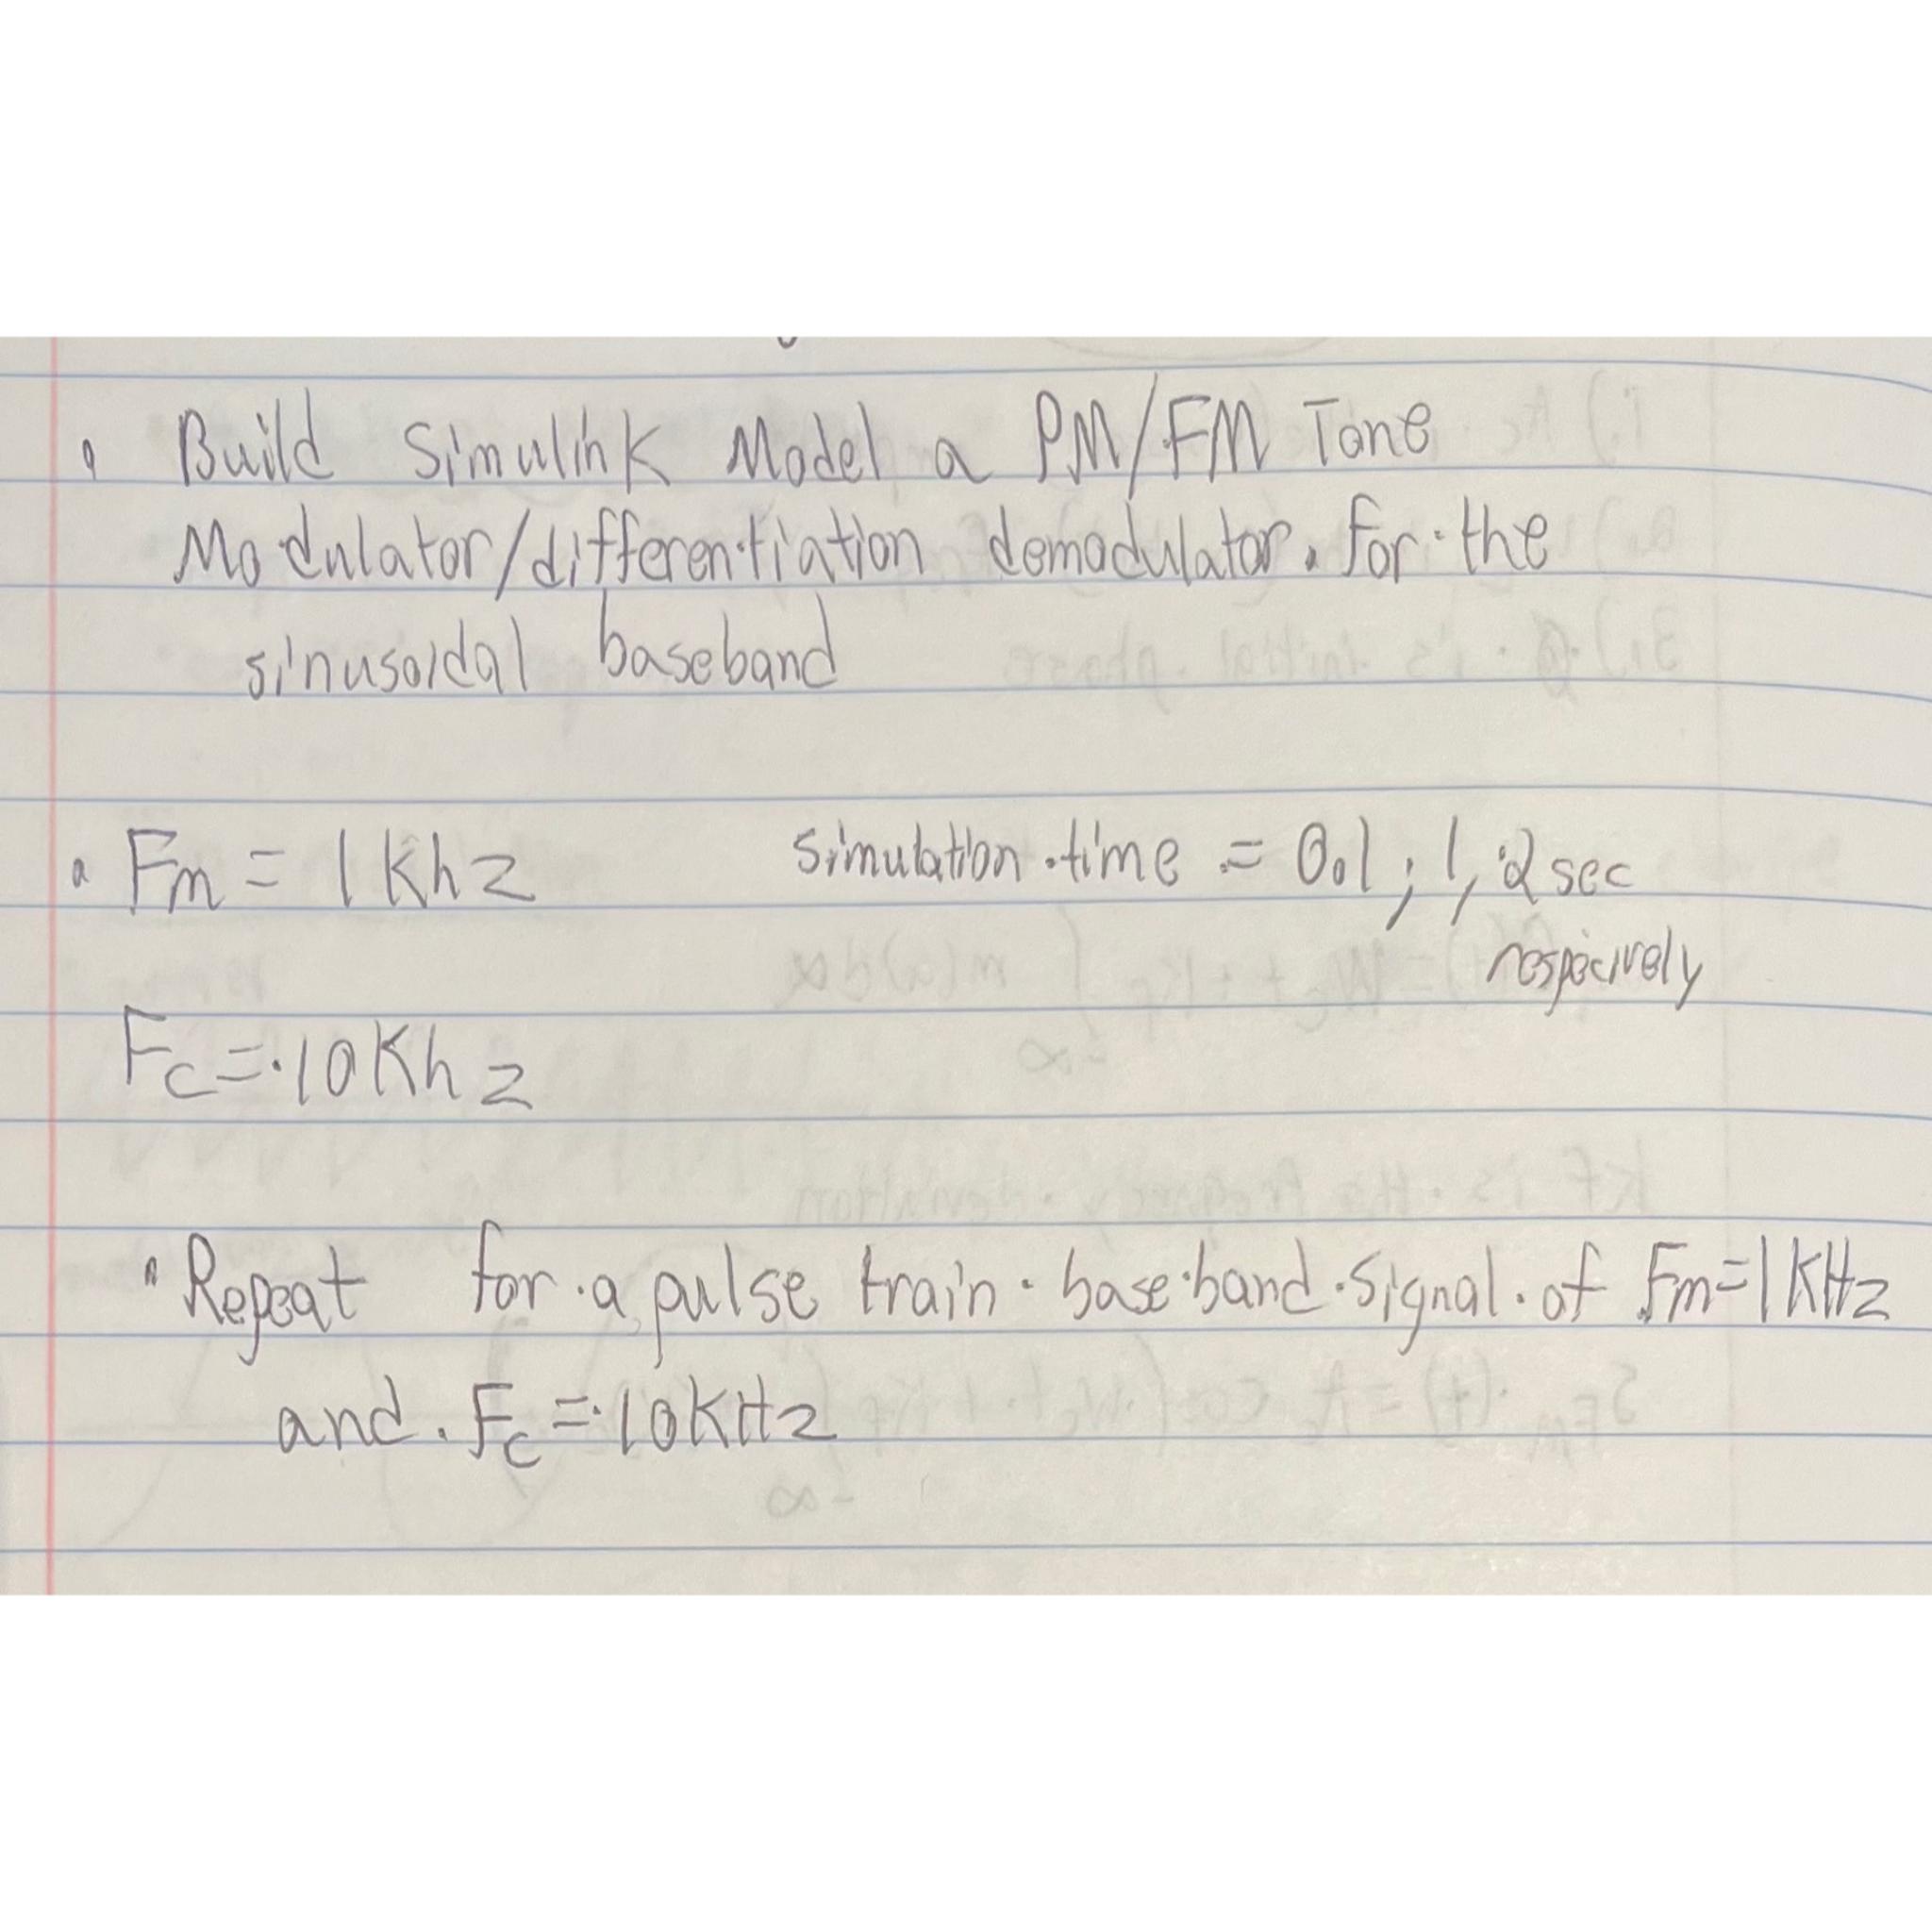 Build Simulink Model a PM/FM Tone
Modulator/differentiation demodulator. For the
sinusoidal baseband
Fm = 1 Khz simulation time = 0.1; 1, 2 sec
respecively
Fc = 10 Khz
Repeat for a pulse train base band signal of Fm = 1 KHz
and Fc = 10 KHz